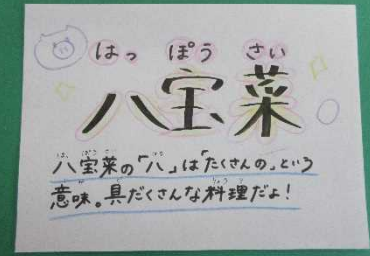 はっ ぽう さい
八宝菜
八宝菜の「八」は「たくさんの」という
意味。具だくさんな料理だよ！